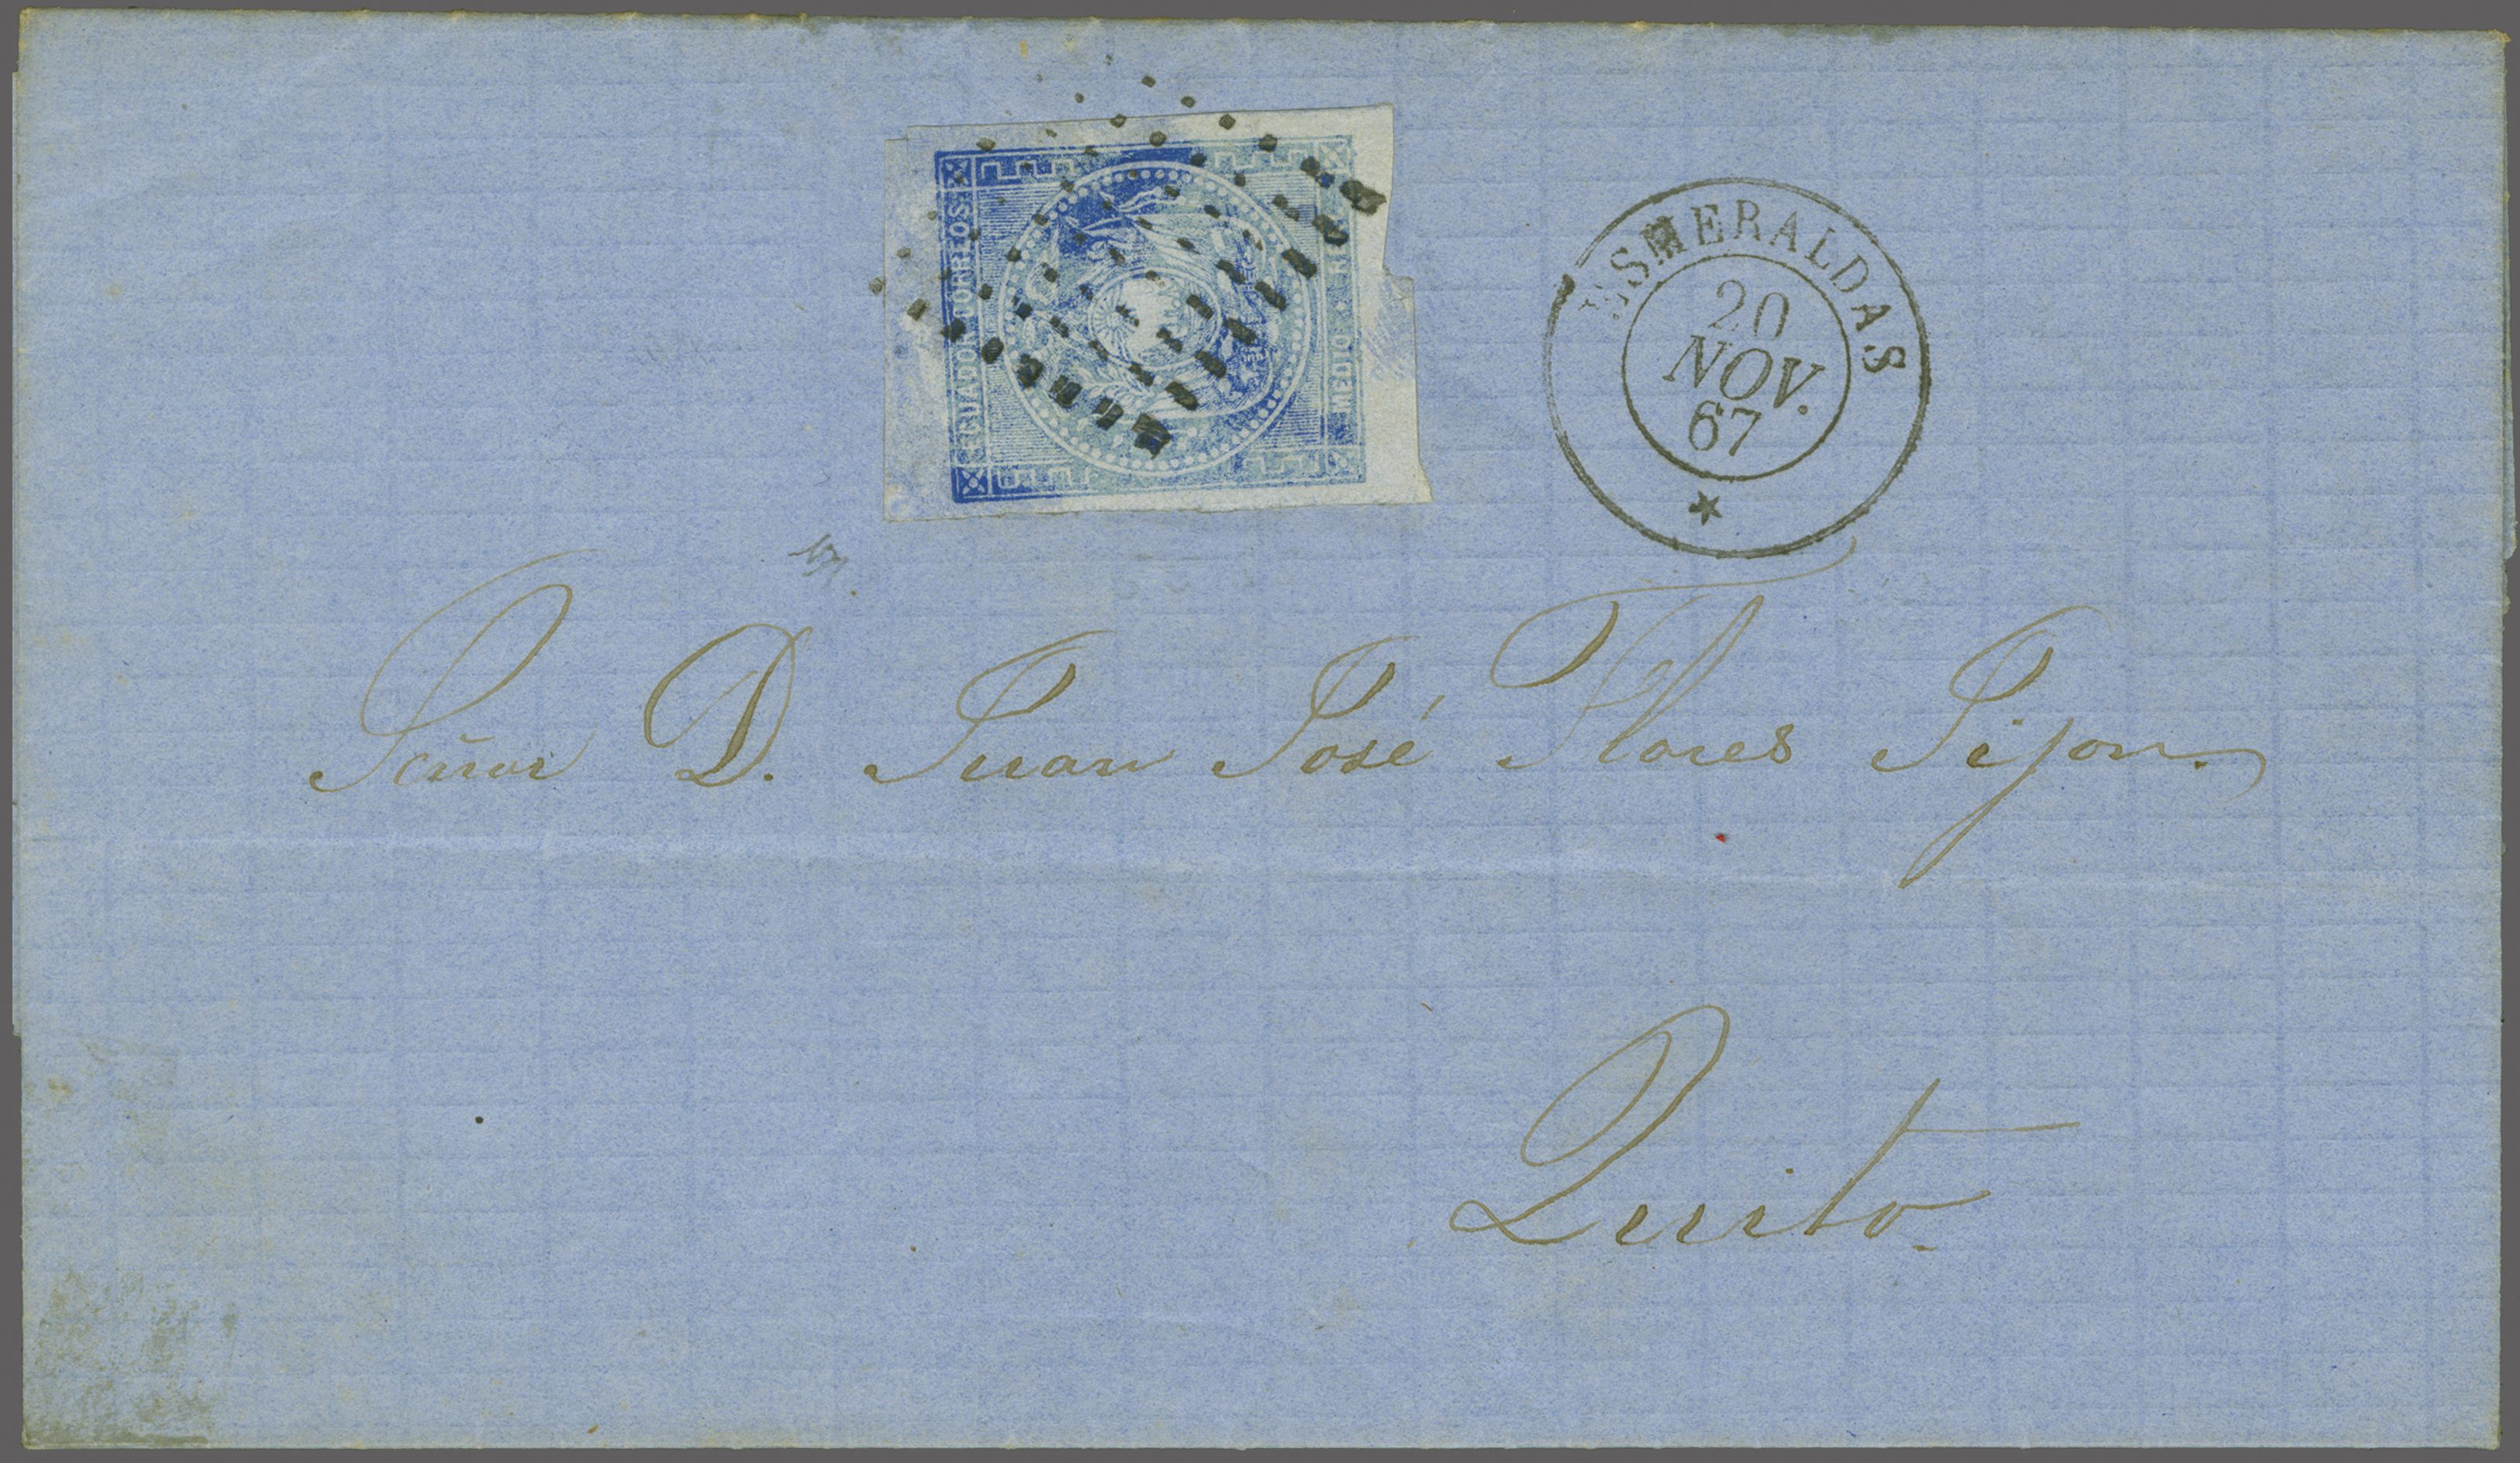 ECUADOR CORREOS
MEDIO
ESMERALDAS
20
NOV.
67
Señor D. Juan José Flores Jijon.
Quito.